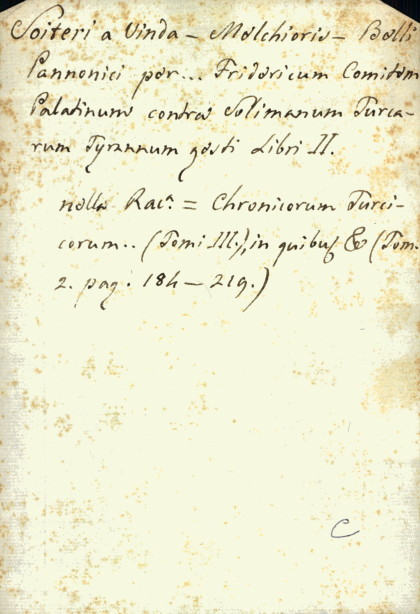 Soiteri a Vinda - Melchioris - Belli
Pannonici per... Fridericum Comitem
Palatinum contra Solimanum Turca-
rum Tyrannum gesti Libri II.
nella Racª. = Chronicorum Turci-
corum.. (Tomi III.), in quibus & (Tom.
2. pag. 184 - 219.)
C